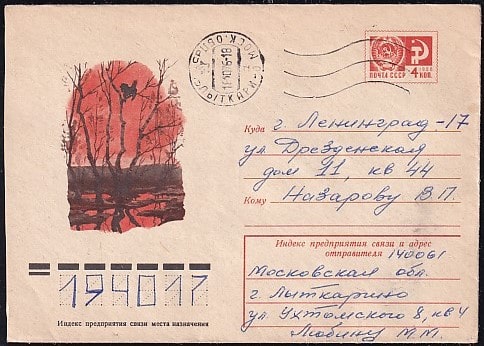 ПОЧТА СССР 4 КОП.
1966
Куда г. Ленинград-17
ул Дрезденская
дом 11, кв 44
Кому Назарову В.П.
Индекс предприятия связи и адрес
отправителя 140061
Московская обл.
г. Лыткарино
ул. Ухтомского 8, кв 4
Любину М.М.
194017
Индекс предприятия связи места назначения